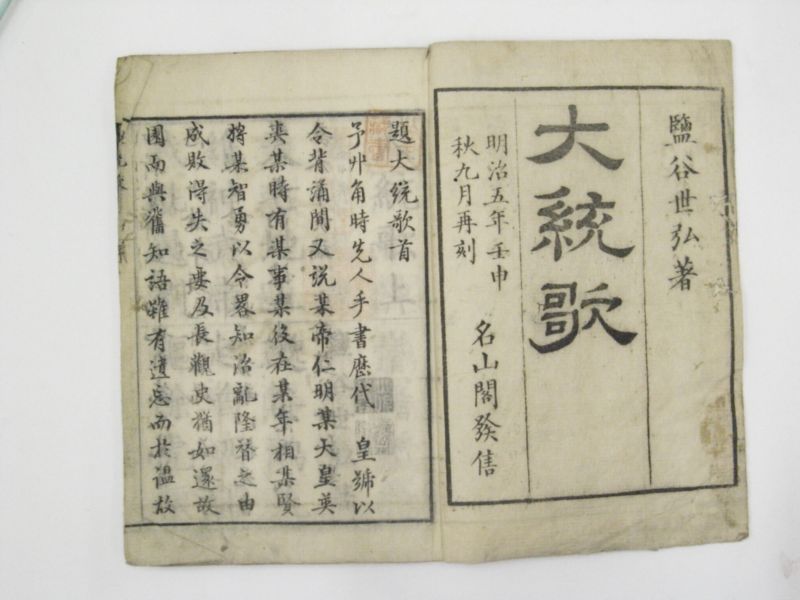 鹽谷世弘著
大統歌
明治五年壬申
秋九月再刻
名山閣發售
題大統歌首
予丱角時先人手書歷代 皇號以
令背誦閒又説某帝仁明某天皇英
奕某時有某事某役在某年相某賢
將某智勇以令畧知治亂隆替之由
成敗得失之要及長觀史猶如還故
園而與舊知語雖有遺忘而於溫故